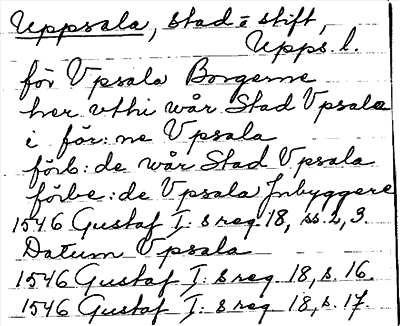 Uppsala, stad i stift,
Upps. l.
för Vpsala Borgerne
her vthi wår Stad Vpsala
i för: ne Vpsala
förb: de wår Stad Vpsala
förbe: de Vpsala Jnbyggere
1546 Gustaf I: s reg. 18, ss. 2, 3.
Datum Vpsala
1546 Gustaf I: s reg. 18, s. 16.
1546 Gustaf I: s reg. 18, s. 17.